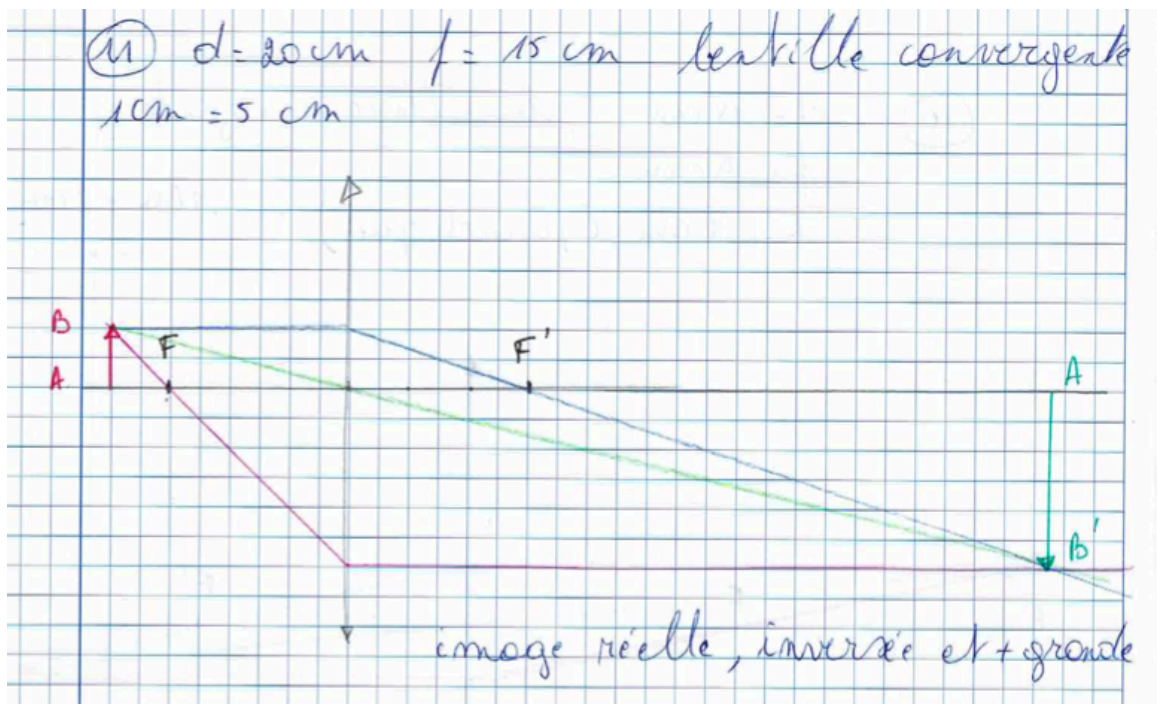 11 d=20cm f= 15 cm lentille convergente
1cm = 5 cm
B
F
F'
A
A
B'
image réelle, inversée et + grande